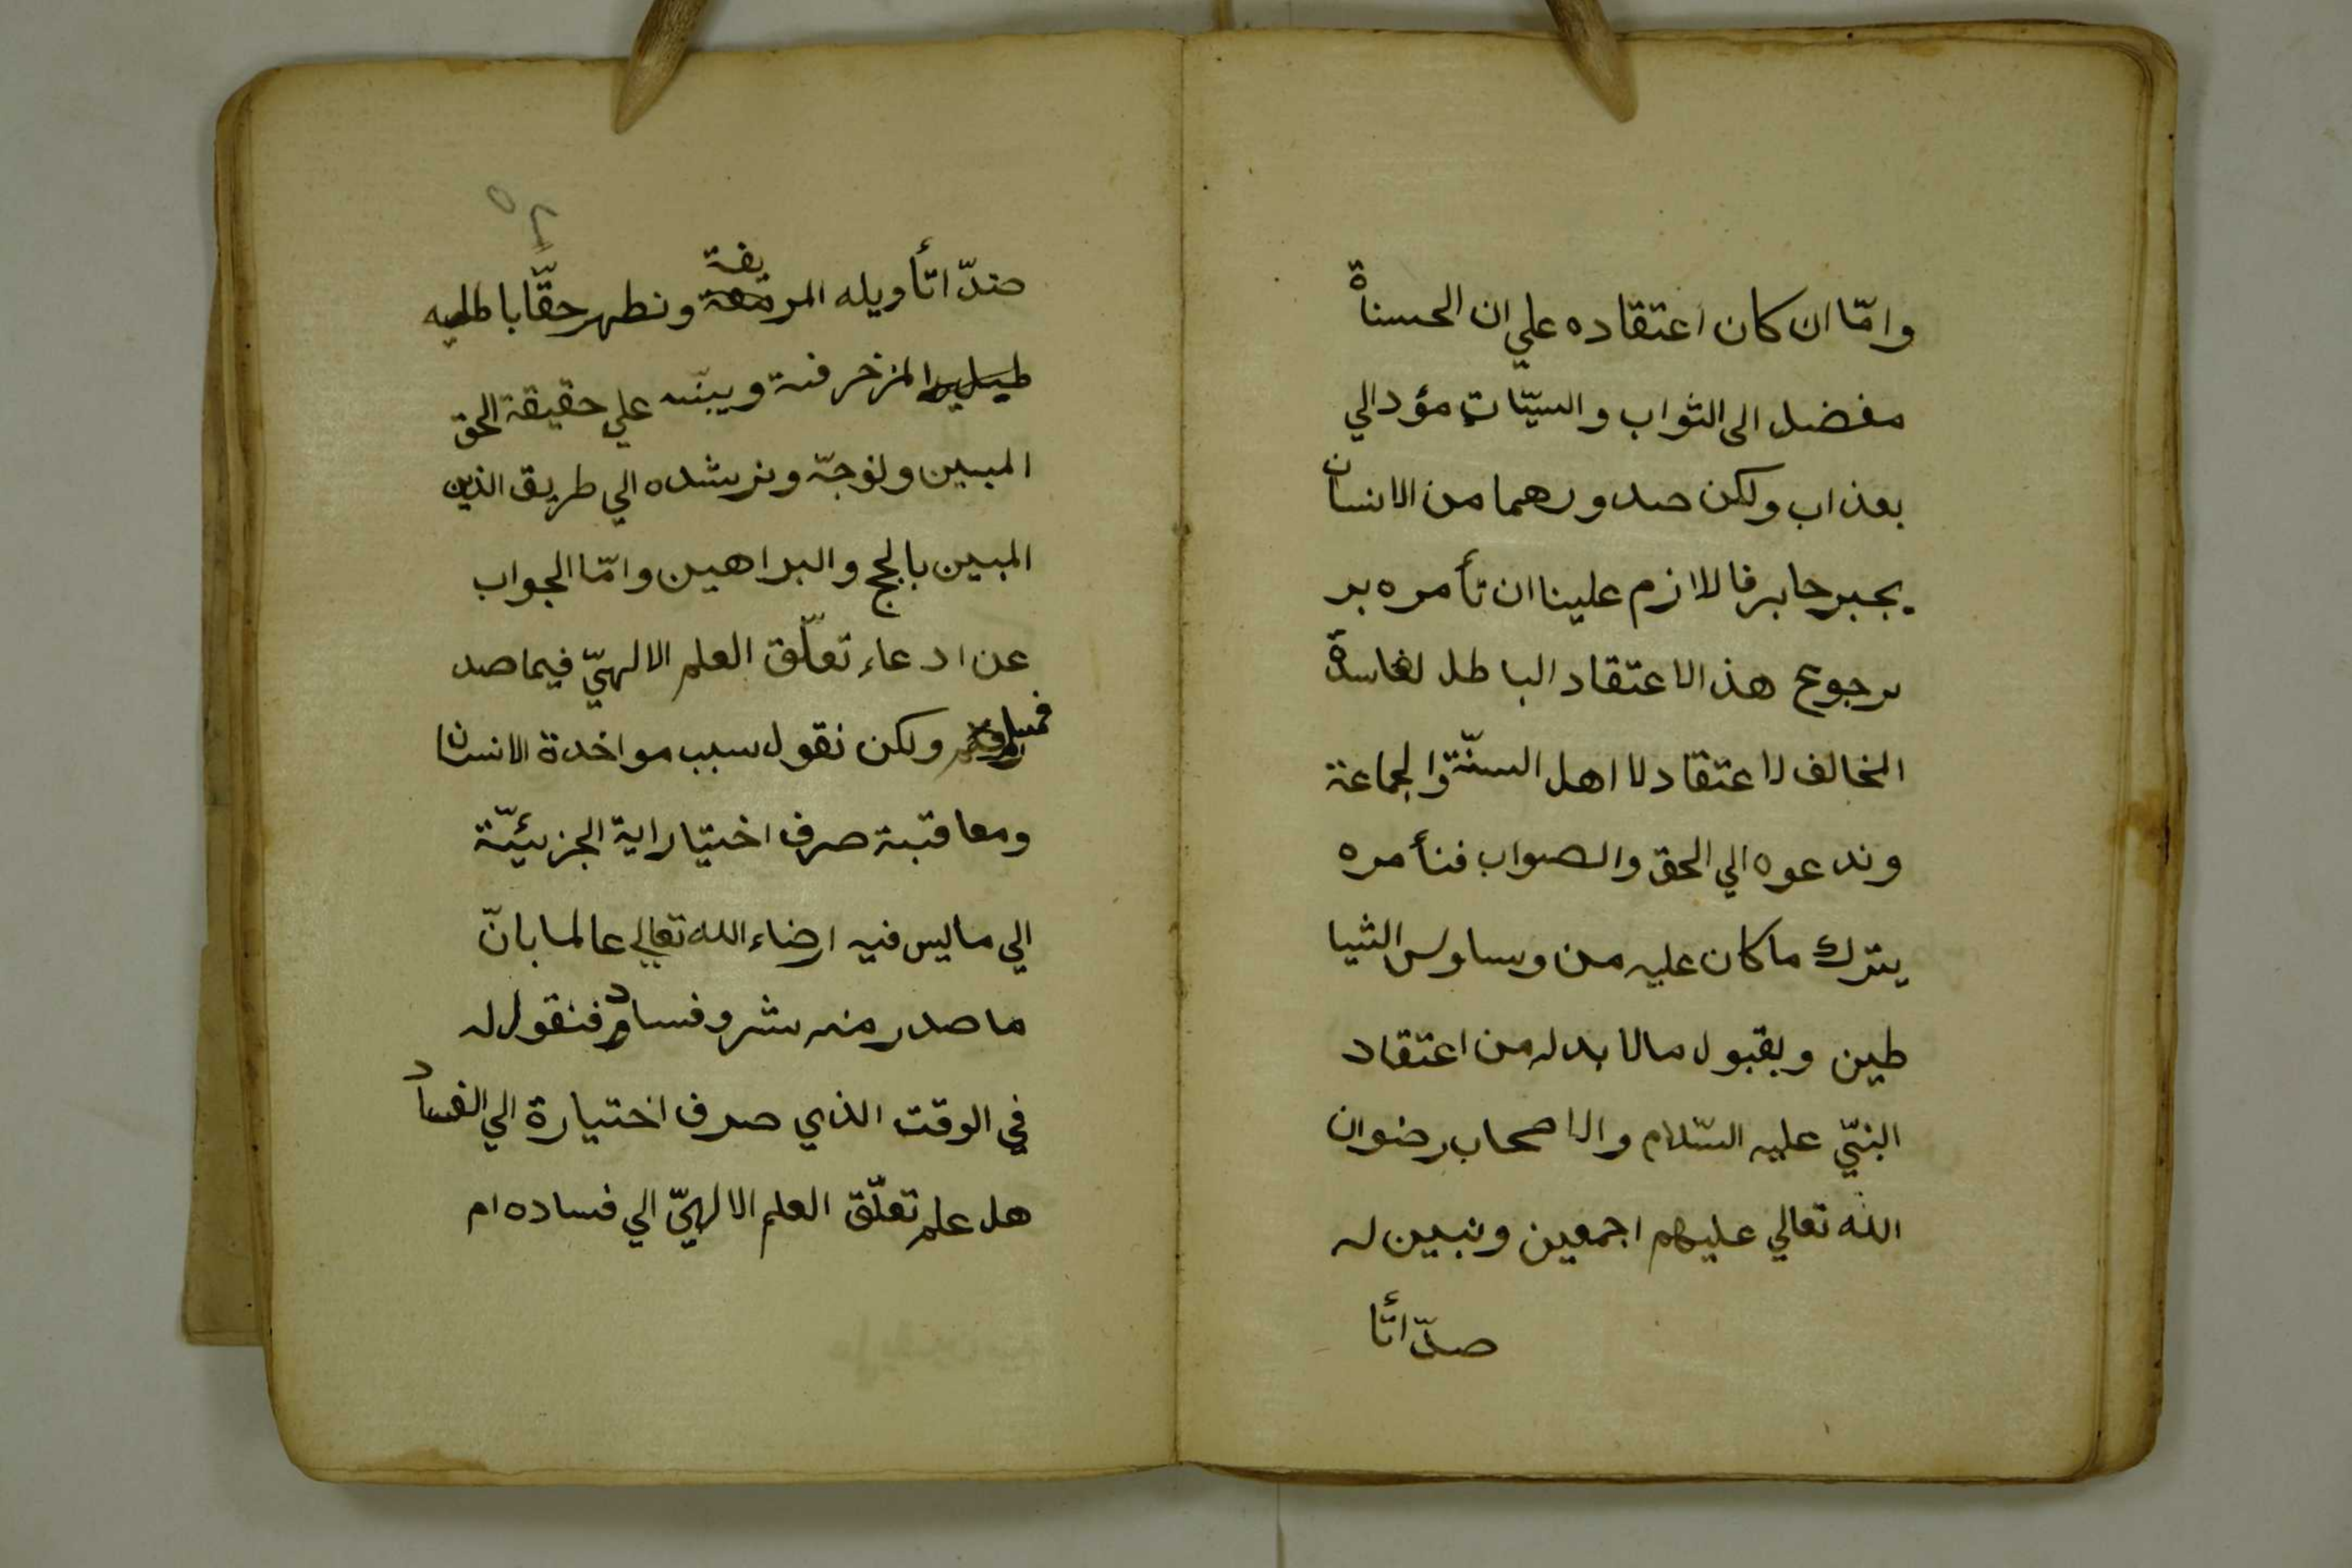 وامّا ان كان اعتقاده علي ان الحسناة
مفضل الى الثواب والسيّات مؤد الي
بعذاب ولكن صدورهما من الانسان
بجبر جابر فالازم علينا ان تأمره بر
برجوع هذ الاعتقاد الباطل لفاسدة
المخالف لاعتقاد لا اهل السنّة والجماعة
وندعوه الي الحق والصواب فنأمره
يترك ما كان عليه من وساوس الشيا
طين وبقبول مالا بدله من اعتقاد
النبيّ عليه السّلام والاصحاب رضوان
الله تعالي عليهم اجمعين ونبين له
صدّ اتأ
٥٢
ضدّ اتأويله المر يفة ونظهر حقّا باطليه
المزخرفة وينبّه علي حقيقة الحق
المبين ونوجّه ونرشده الي طريق الذين
المبين بالحجج والبراهين وامّا الجواب
عن ادعاء تعلّق العلم الالهيّ فيما صد
ولكن نقول سبب مواخدة الانسان
ومعاقبة صرف اختياراية الجزئيّة
الي ما ليس فيه ارضاء الله تعالي عالما بانّ
ما صدر منه شر وفساد فنقول له
في الوقت الذي صرف اختيارة الي الفساد
هل علم تعلّق العلم الالهيّ الي فساده ام